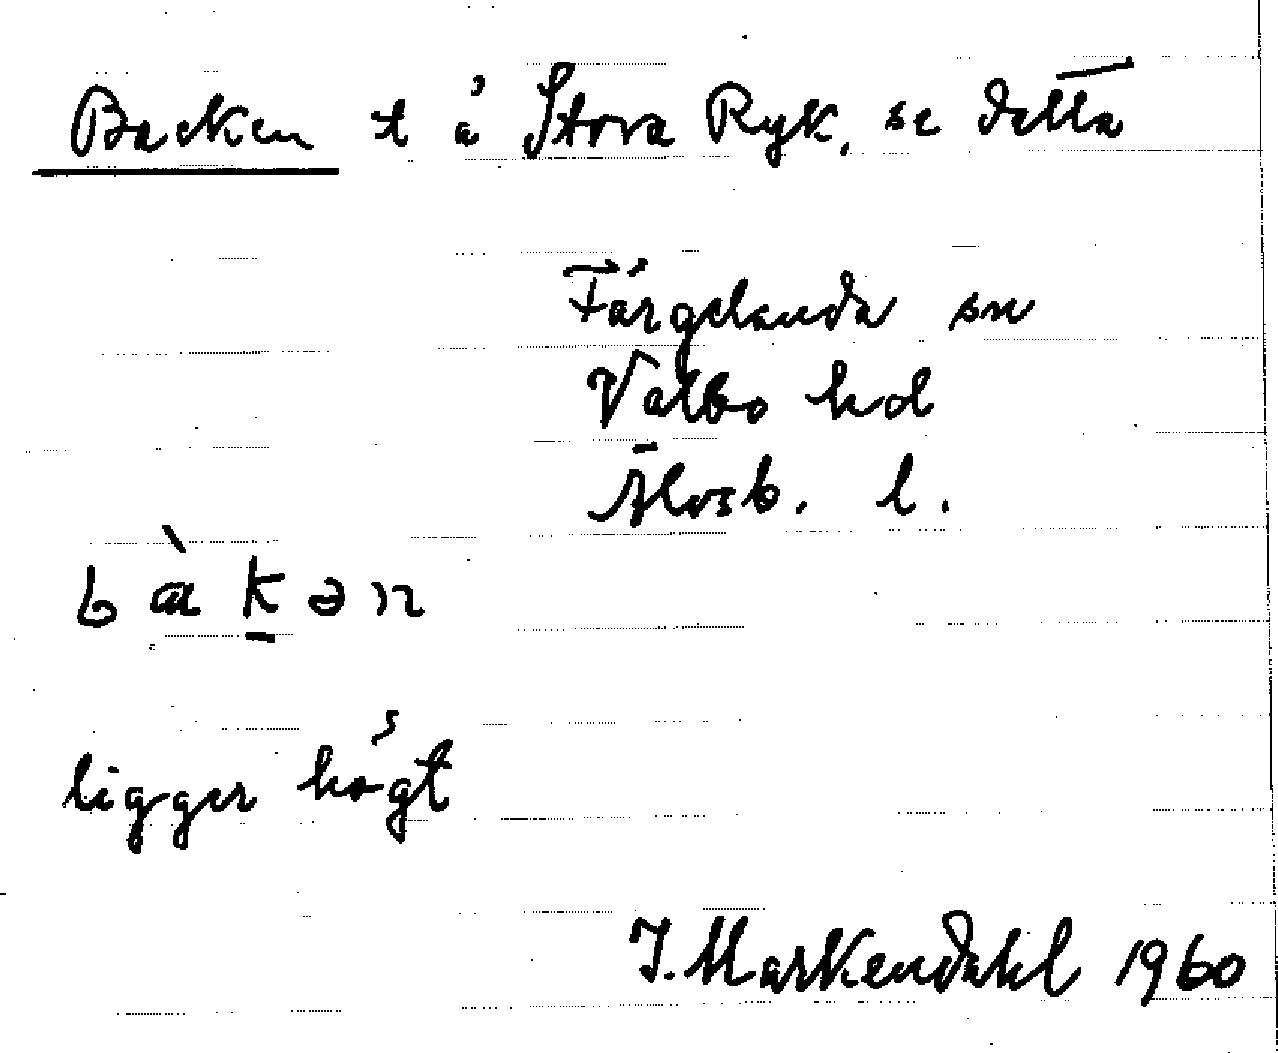 Backen t å Stora Ryk, se detta
Färgelanda sn
Valbo hd
Älvsb. l.
bàkən
ligger högt
I. Markendahl 1960